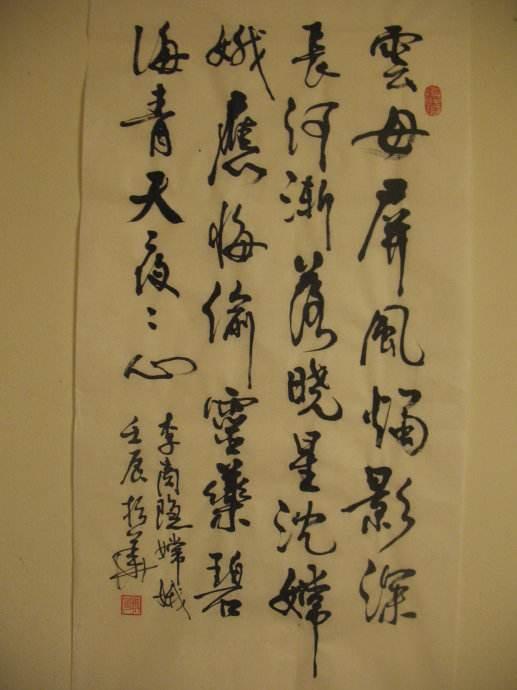 雲母屏風燭影深
長河漸落曉星沈嫦
娥應悔偷靈藥碧
海青天夜〻心
李商隱嫦娥
壬辰